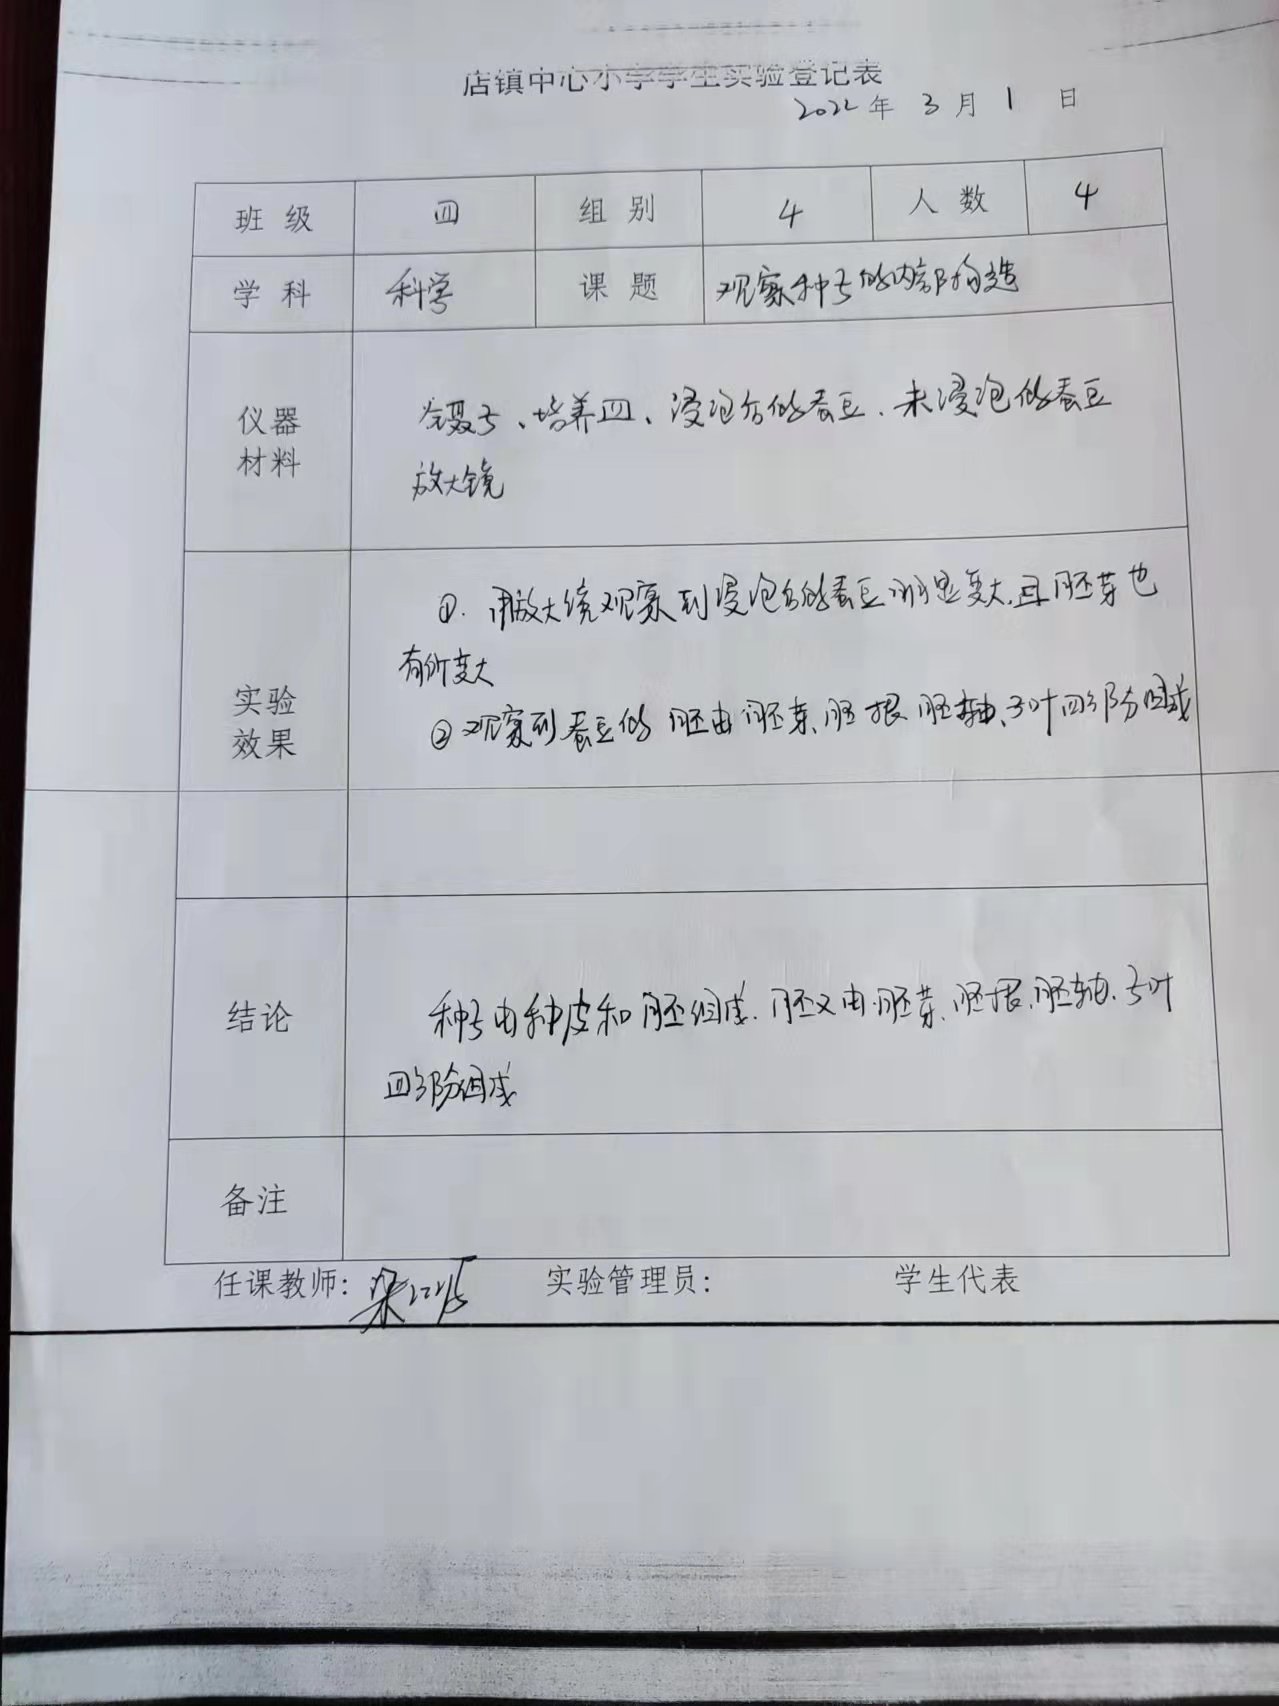 店镇中心小学学生实验登记表
2022年 3 月 1 日
班 级 四 组 别 4 人 数 4
学 科 科学 课 题 观察种子的内部构造
仪器
材料
镊子、培养皿、浸泡后的蚕豆、未浸泡的蚕豆
放大镜
实验
效果
①. 用放大镜观察到浸泡后的蚕豆明显变大,且胚芽也
有所变大
②观察到蚕豆的胚由胚芽、胚根、胚轴、子叶四部分组成
结论
种子由种皮和胚组成.胚又由胚芽、胚根、胚轴、子叶
四部分组成
备注
任课教师: 实验管理员: 学生代表